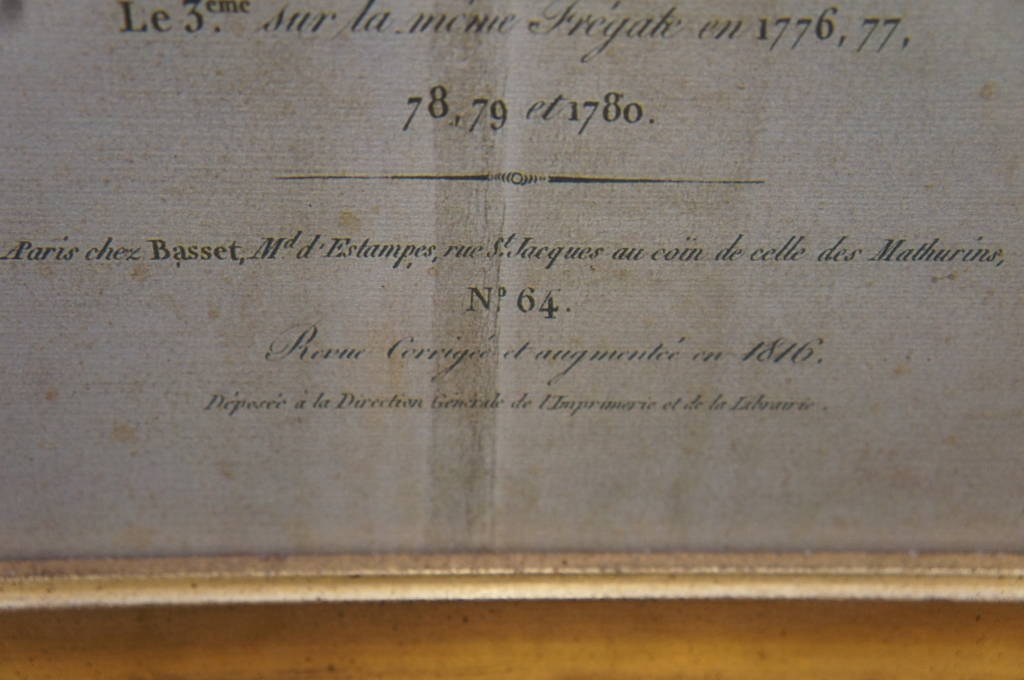 Le 3.eme sur la même Frégate en 1776, 77,
78, 79 et 1780.
Paris chez Basset, Md d'Estampes, rue St. Jacques au coïn de celle des Mathurins,
No. 64.
Revue Corrigeé et augmenteé en 1816.
Déposeé à la Direction Générale de l'Imprimerie et de la Librairie.